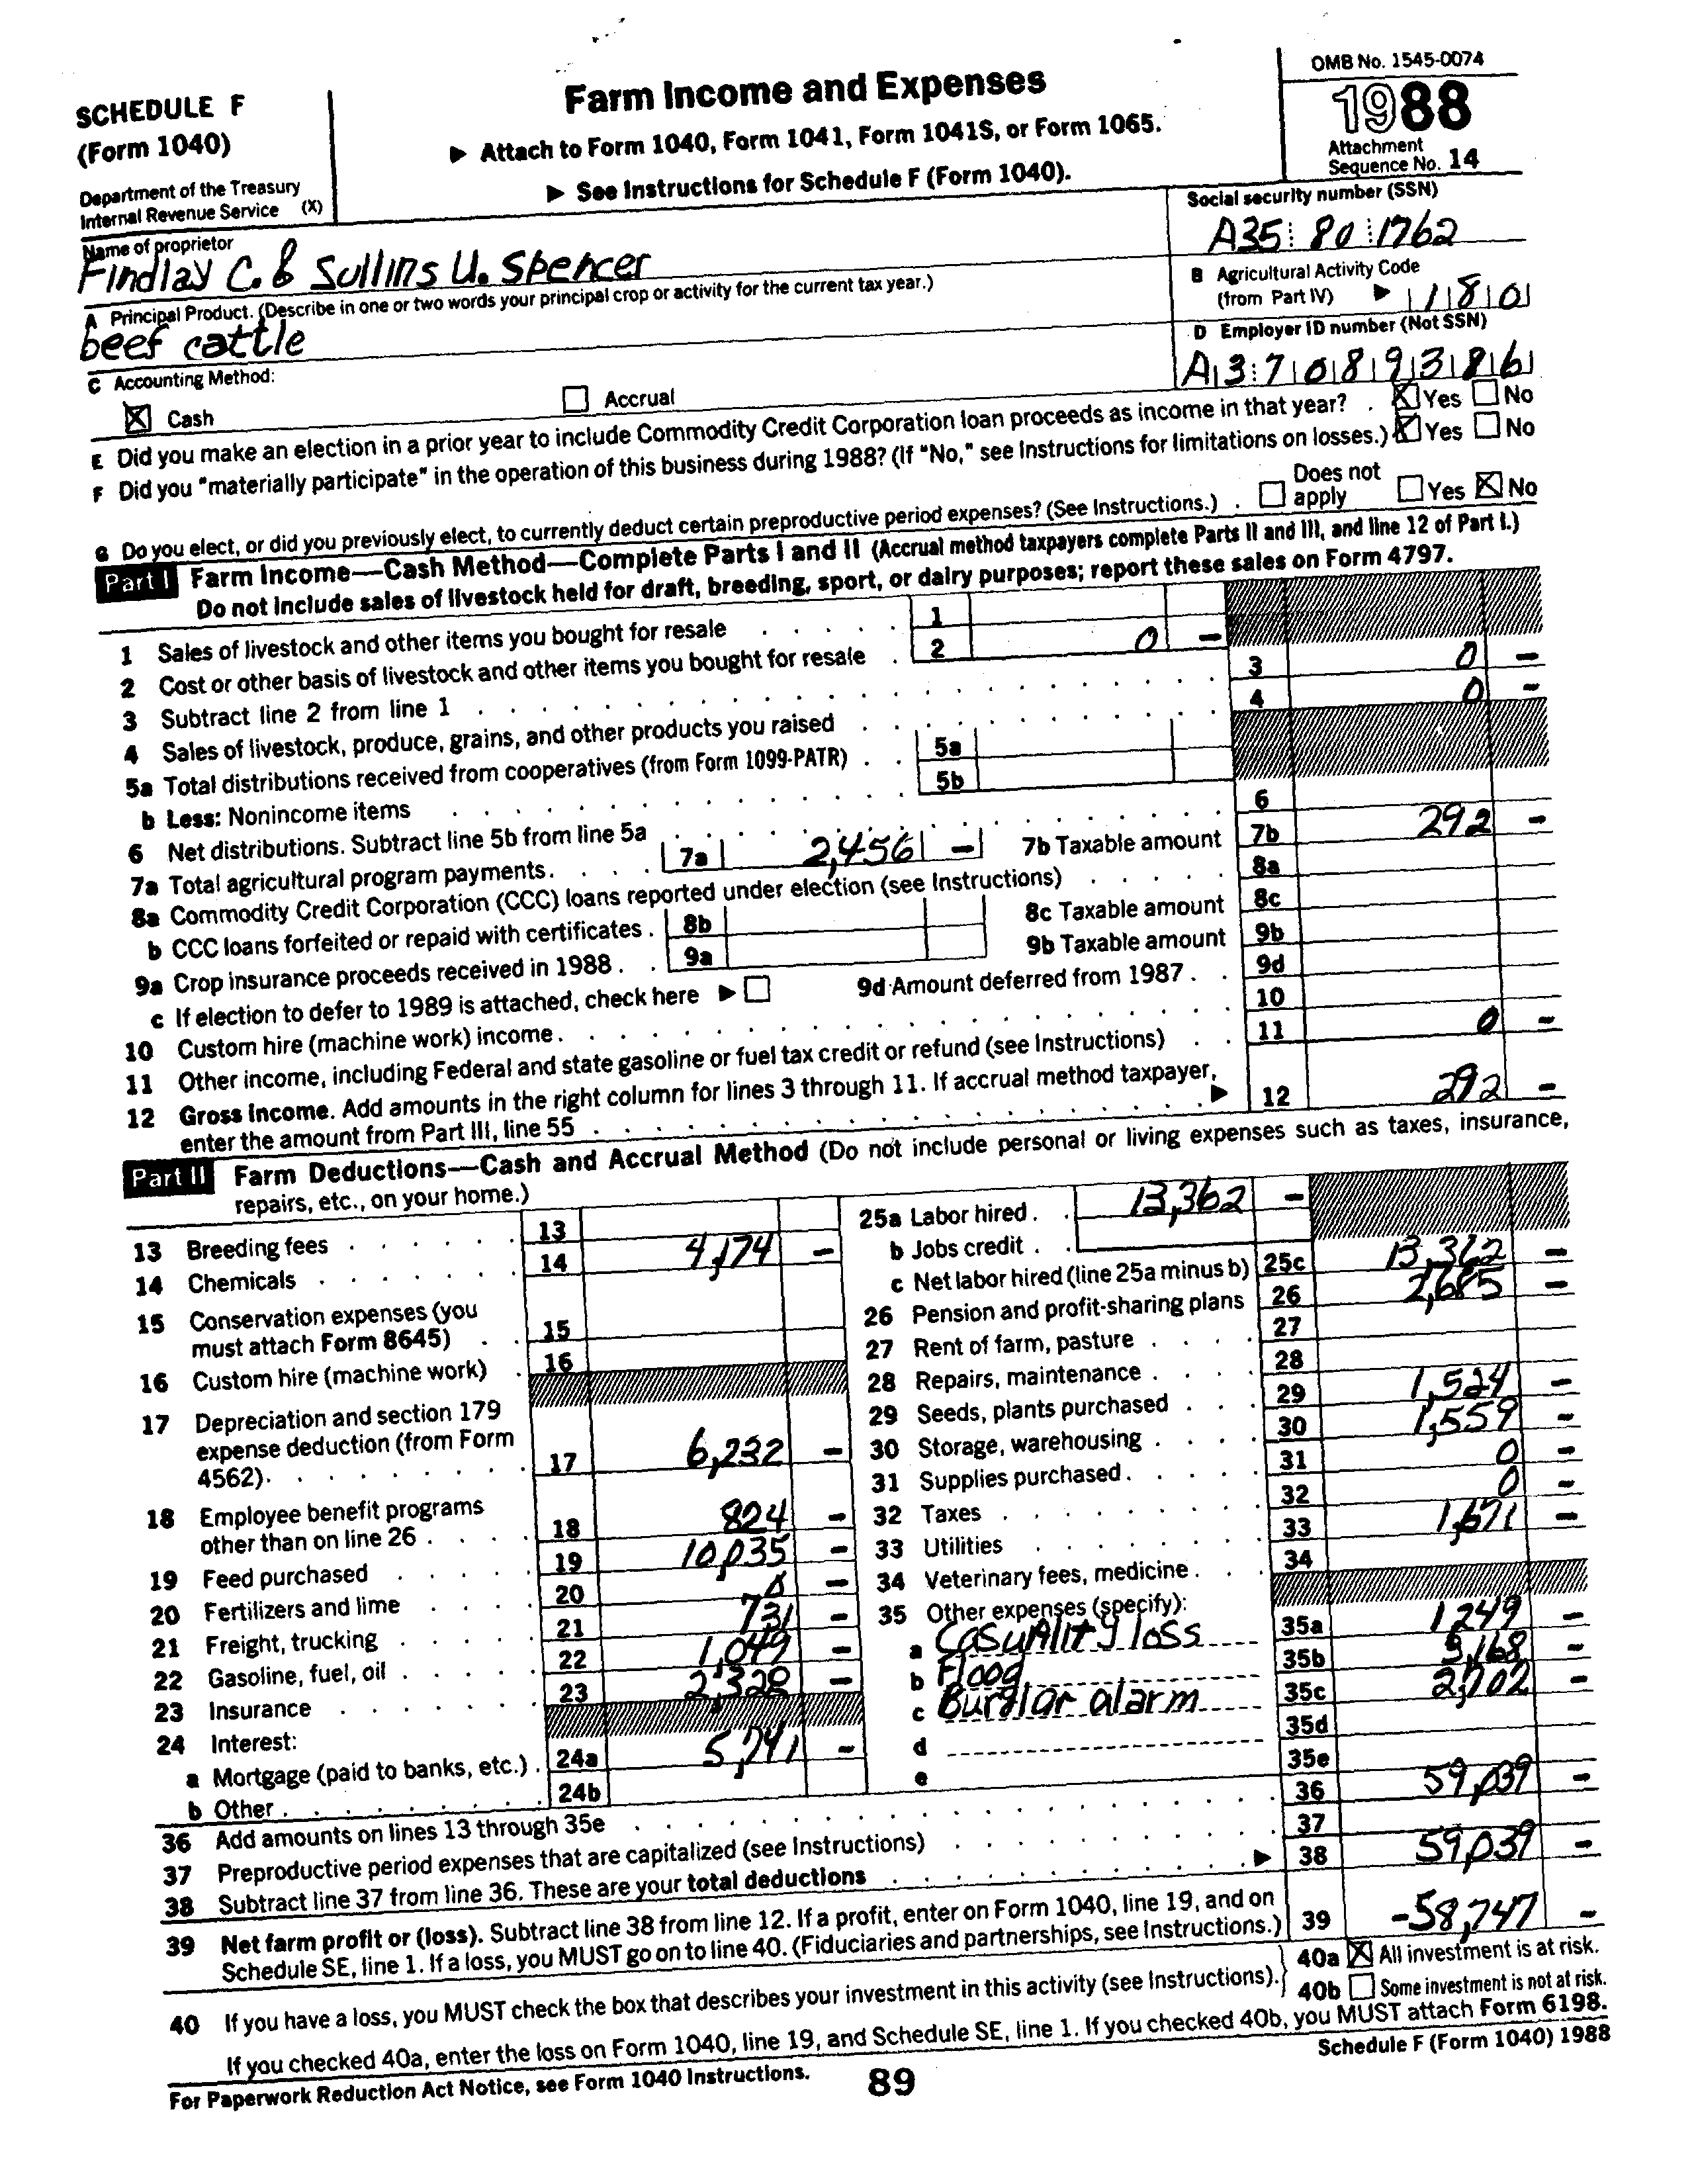 SCHEDULE F
(Form 1040)
Department of the Treasury
Internal Revenue Service (X)
Farm Income and Expenses
▶ Attach to Form 1040, Form 1041, Form 1041S, or Form 1065.
▶ See Instructions for Schedule F (Form 1040).
OMB No. 1545-0074
1988
Attachment
Sequence No. 14
Name of proprietor
Findlay C. & Sullins U. Spencer
Social security number (SSN)
A35 80 1762
A Principal Product. (Describe in one or two words your principal crop or activity for the current tax year.)
beef cattle
B Agricultural Activity Code
(from Part IV) ▶ 1 8 0
D Employer ID number (Not SSN)
A 3 7 0 8 9 3 8 6
C Accounting Method:
Cash Accrual
E Did you make an election in a prior year to include Commodity Credit Corporation loan proceeds as income in that year? . Yes No
F Did you "materially participate" in the operation of this business during 1988? (If "No," see Instructions for limitations on losses.) Yes No
G Do you elect, or did you previously elect, to currently deduct certain preproductive period expenses? (See Instructions.) . Does not apply Yes No
Part I Farm Income—Cash Method—Complete Parts I and II (Accrual method taxpayers complete Parts II and III, and line 12 of Part I.)
Do not include sales of livestock held for draft, breeding, sport, or dairy purposes; report these sales on Form 4797.
1 Sales of livestock and other items you bought for resale 1
2 Cost or other basis of livestock and other items you bought for resale 2 0 –
3 Subtract line 2 from line 1 3 0 –
4 Sales of livestock, produce, grains, and other products you raised 4 0 –
5a Total distributions received from cooperatives (from Form 1099-PATR) 5a
b Less: Nonincome items 5b
6 Net distributions. Subtract line 5b from line 5a 6
7a Total agricultural program payments. 7a 2,456 – 7b Taxable amount 7b 292 –
8a Commodity Credit Corporation (CCC) loans reported under election (see Instructions) 8a
b CCC loans forfeited or repaid with certificates . 8b 8c Taxable amount 8c
9a Crop insurance proceeds received in 1988 . 9a 9b Taxable amount 9b
c If election to defer to 1989 is attached, check here ▶ 9d Amount deferred from 1987 . 9d
10 Custom hire (machine work) income . 10
11 Other income, including Federal and state gasoline or fuel tax credit or refund (see Instructions) 11 0 –
12 Gross income. Add amounts in the right column for lines 3 through 11. If accrual method taxpayer,
enter the amount from Part III, line 55 ▶ 12 292 –
Part II Farm Deductions—Cash and Accrual Method (Do not include personal or living expenses such as taxes, insurance,
repairs, etc., on your home.)
13 Breeding fees 13
14 Chemicals 14 4,174 –
15 Conservation expenses (you
must attach Form 8645) 15
16 Custom hire (machine work) 16
17 Depreciation and section 179
expense deduction (from Form
4562). 17 6,232 –
18 Employee benefit programs
other than on line 26 . 18 824 –
19 Feed purchased 19 10,035 –
20 Fertilizers and lime 20 0 –
21 Freight, trucking 21 731 –
22 Gasoline, fuel, oil 22 1,049 –
23 Insurance 23 2,328 –
24 Interest:
a Mortgage (paid to banks, etc.) . 24a 5,741 –
b Other . 24b
25a Labor hired . 13,362 –
b Jobs credit .
c Net labor hired (line 25a minus b) 25c 13,362 –
26 Pension and profit-sharing plans 26 2,685 –
27 Rent of farm, pasture 27
28 Repairs, maintenance 28
29 Seeds, plants purchased 29 1,524 –
30 Storage, warehousing 30 1,559 –
31 Supplies purchased . 31 0 –
32 Taxes 32 0 –
33 Utilities 33 1,671 –
34 Veterinary fees, medicine . 34
35 Other expenses (specify):
a Casuality loss 35a 1,249 –
b Flood 35b 3,168 –
c Burglar alarm 35c 2,702 –
d 35d
e 35e
36 Add amounts on lines 13 through 35e 36 59,039 –
37 Preproductive period expenses that are capitalized (see Instructions) 37
38 Subtract line 37 from line 36. These are your total deductions ▶ 38 59,039 –
39 Net farm profit or (loss). Subtract line 38 from line 12. If a profit, enter on Form 1040, line 19, and on
Schedule SE, line 1. If a loss, you MUST go on to line 40. (Fiduciaries and partnerships, see Instructions.) 39 -58,747 –
40 If you have a loss, you MUST check the box that describes your investment in this activity (see Instructions). 40a All investment is at risk.
40b Some investment is not at risk.
If you checked 40a, enter the loss on Form 1040, line 19, and Schedule SE, line 1. If you checked 40b, you MUST attach Form 6198.
For Paperwork Reduction Act Notice, see Form 1040 Instructions. 89 Schedule F (Form 1040) 1988